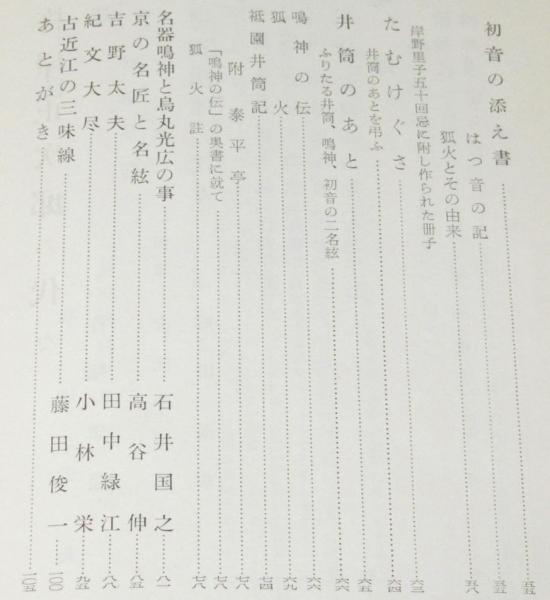 初音の添え書……五五
はつ音の記……五五
狐火とその由来……五八
岸野里子五十回忌に附し作られた冊子……六三
たむけぐさ……六四
井筒のあとを弔ふ……六五
井筒のあと……六六
ふりたる井筒、鳴神、初音の二名絃
鳴神の伝……六六
狐火……六九
祇園井筒記……七四
附 泰平亭……七八
「鳴神の伝」の奥書に就て……七八
狐火註……七八
名器鳴神と烏丸光広の事……石井国之……八一
京の名匠と名絃……高谷伸……八五
吉野太夫……田中緑江……八八
紀文大尽……小林栄……九五
古近江の三味線……藤田俊一……一〇〇
あとがき……一〇五